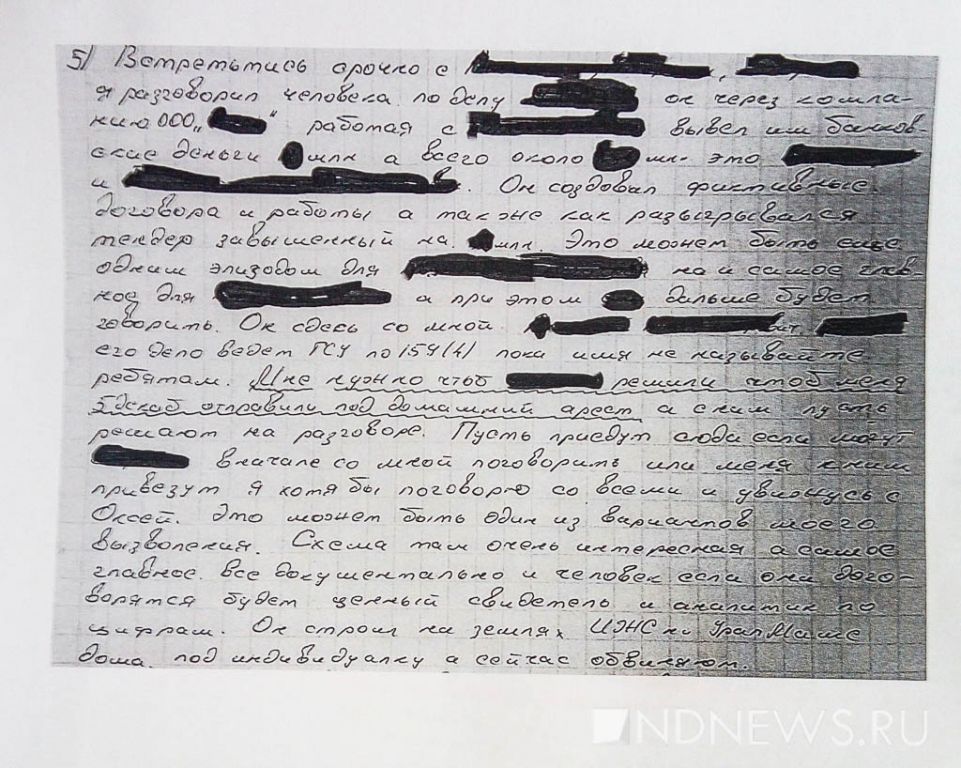 5) Встретьтись срочно с
я разговорил человека по делу он через компа-
нию ООО „ “ работая с вывел им банков-
ские деньги млн а всего около мн- это
и в. Он создовал фиктивные
договора и работы а также как разыгрывался
тендер завышенный на млн. Это может быть еще
одним эпизодом для на и самое глав-
ное для а при этом дальше будет
говорить. Он сдесь со мной
его дело ведет ГСУ по 159(4) пока имя не называйте
ребятам. Мне нужно чтоб решили чтоб меня
отправили под домашний арест а с ним пусть
решают на разговоре. Пусть приедут сюда если могут
вначале со мной поговорить или меня к ним
привезут я хотя бы поговорю со всеми и увижусь с
Оксей. Это может быть один из вариантов моего
вызволения. Схема там очень интересная а самое
главное все документально и человек если они дого-
ворятся будет ценный свидетель и аналитик по
цифрам. Он строил на землях ИЖС на УралМаше
дома под индивидуалку а сейчас обвиняют.
NDNEWS.RU